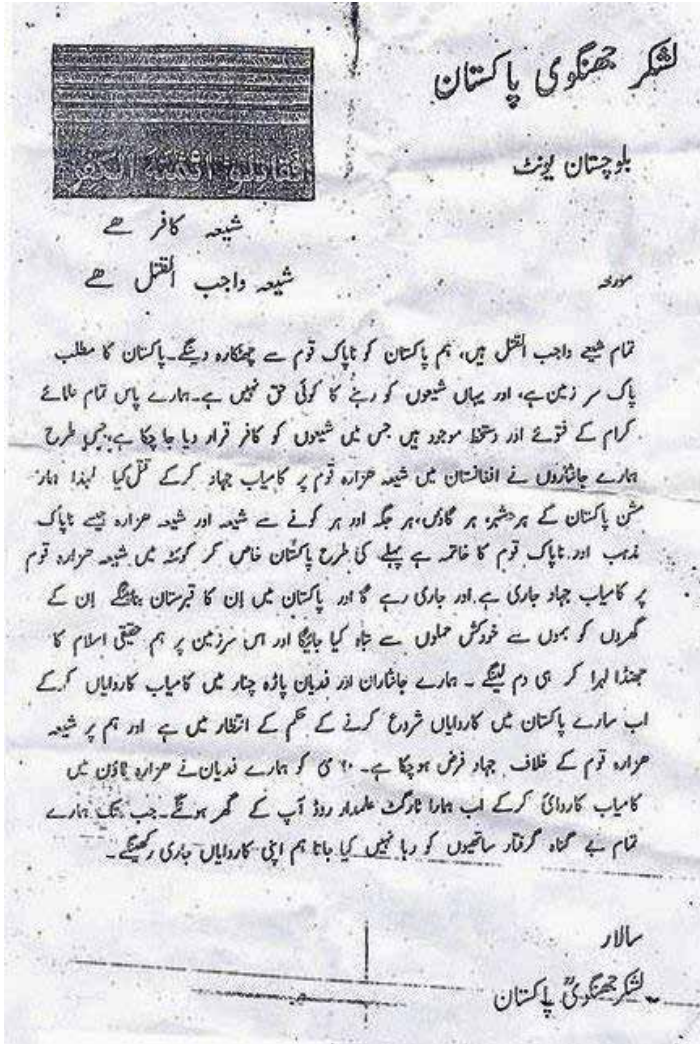 لشکر جھنگوی پاکستان
بلوچستان یونٹ
شیعہ کافر ھے
شیعہ واجب القتل ھے
مورخہ
تمام شیعے واجب القتل ہیں، ہم پاکستان کو ناپاک قوم سے چھٹکارہ دینگے۔پاکستان کا مطلب
پاک سر زمین ہے، اور یہاں شیعوں کو رہنے کا کوئی حق نہیں ہے۔ہمارے پاس تمام علمائے
کرام کے فتوئے اور دستخط موجود ہیں جس میں شیعوں کو کافر قرار دیا جا چکا ہے،جس طرح
ہمارے جانثاروں نے افغانستان میں شیعہ ھزارہ قوم پر کامیاب جہاد کرکے قتل کیا لہذا ہمارا
مشن پاکستان کے ہر شہر، ہر گاؤں،ہر جگہ اور ہر کونے سے شیعہ اور شیعہ ھزارہ جیسے ناپاک
مذہب اور ناپاک قوم کا خاتمہ ہے پہلے کی طرح پاکستان خاص کر کوئٹہ میں شیعہ ھزارہ قوم
پر کامیاب جہاد جاری ہے اور جاری رہے گا اور پاکستان میں اِن کا قبرستان بنائینگے اِن کے
گھروں کو بموں سے خودکش حملوں سے تباہ کیا جائیگا اور اس سرزمین پر ہم حقیقی اسلام کا
جھنڈا لہرا کر ہی دم لینگے ۔ ہمارے جانثاران اور فدیان پاڑہ چنار میں کامیاب کاروایاں کرکے
اب سارے پاکستان میں کاروایاں شروع کرنے کے حکم کے انتظار میں ہے اور ہم پر شیعہ
ھزارہ قوم کے خلاف جہاد فرض ہوچکا ہے۔ مئی کو ہمارے فدیان نے ھزارہ ٹاؤن میں
کامیاب کاروائی کرکے اب ہمارا ٹارگٹ علمدار روڈ آپ کے گھر ہونگے۔جب تک ہمارے
تمام بے گناہ گرفتار ساتھیوں کو رہا نہیں کیا جاتا ہم اپنی کاروایاں جاری رکھینگے۔
سالار
لشکر جھنگویؒ پاکستان